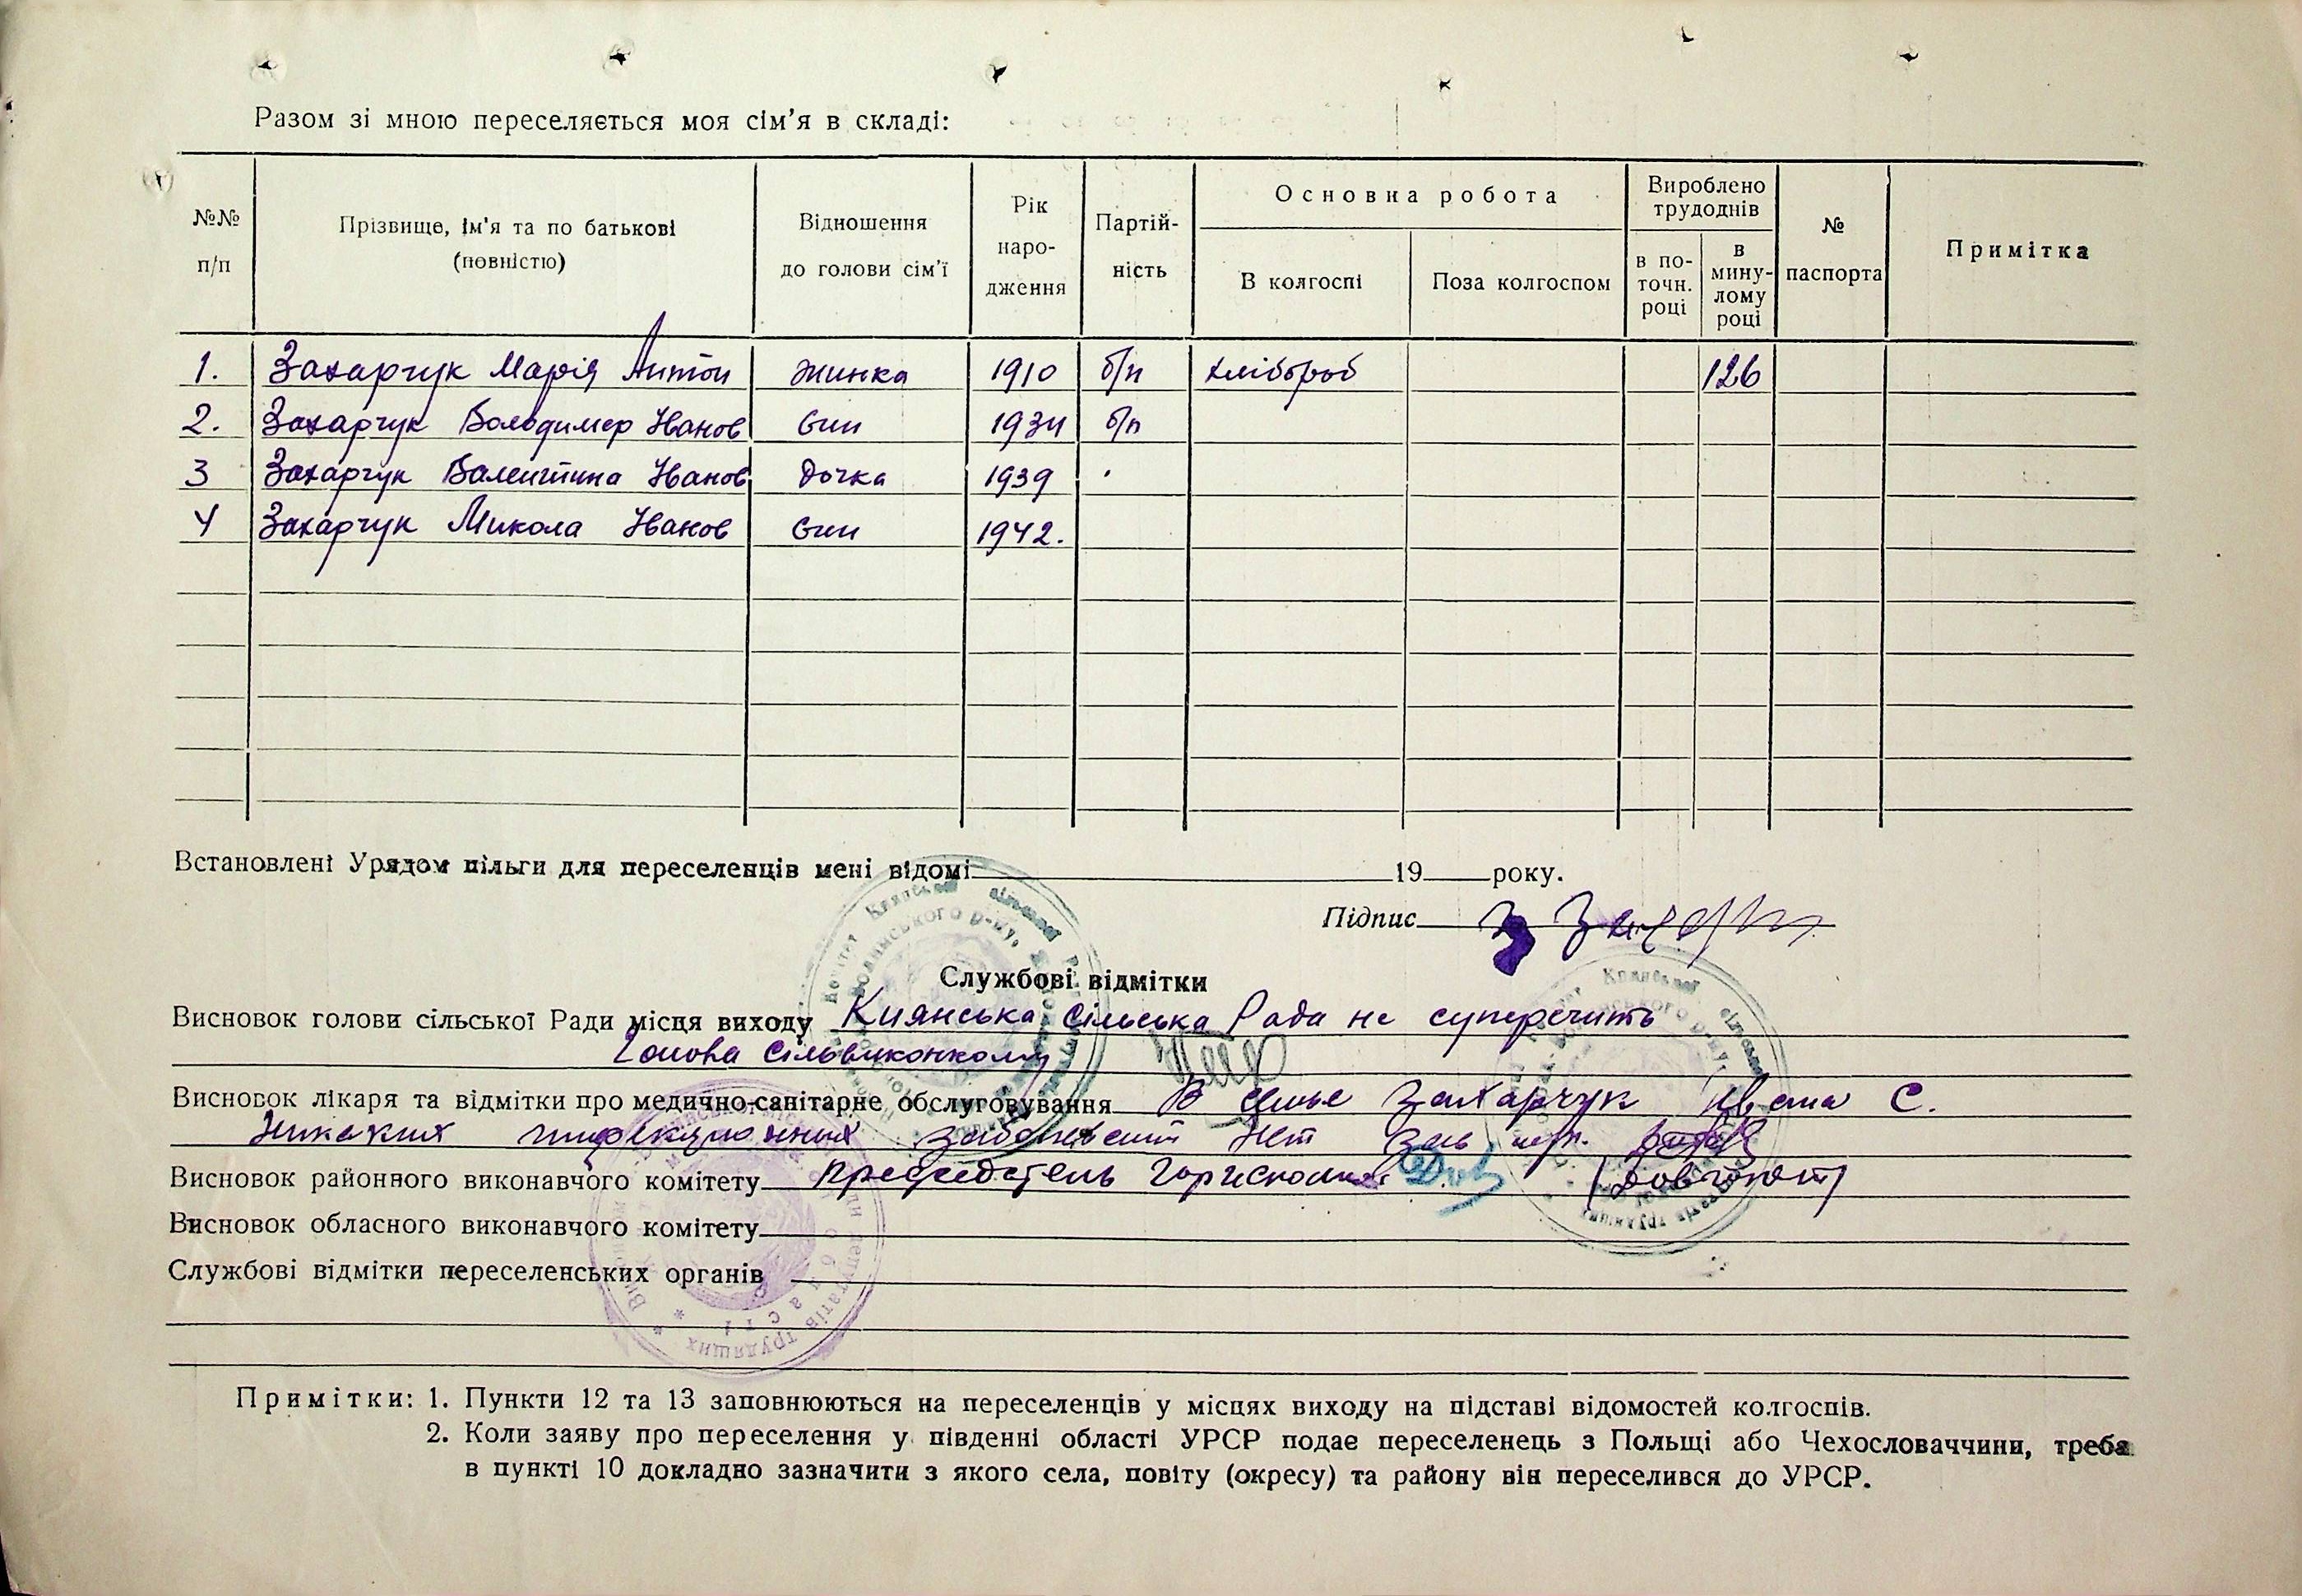 Разом зі мною переселяється моя сім'я в складі:
№№ п/п Прізвище, ім'я та по батькові (повністю) Відношення до голови сім'ї Рік народження Партійність Основна робота В колгоспі Поза колгоспом Вироблено трудоднів в поточн. році в минулому році № паспорта Примітка
1. Захарчук Марія Антон жинка 1910 б/п хлібороб 126
2. Захарчук Володимер Іванов Син 1934 б/п
3 Захарчук Валентина Іванов Дочка 1939
4 Захарчук Микола Іванов Син 1942.
Встановлені Урядом пільги для переселенців мені відомі 19 року.
Підпис
Службові відмітки
Висновок голови сільської Ради місця виходу Киянська сільська Рада не суперечить
Голова Сільвиконкому
Висновок лікаря та відмітки про медично-санітарне обслуговування В семье Захарчук Ивана С.
Никаких инфекционных заболеваний нет Зав
Висновок районного виконавчого комітету Председатель Горисполкома
Висновок обласного виконавчого комітету
Службові відмітки переселенських органів
Примітки: 1. Пункти 12 та 13 заповнюються на переселенців у місцях виходу на підставі відомостей колгоспів.
2. Коли заяву про переселення у південні області УРСР подає переселенець з Польщі або Чехословаччини, треба
в пункті 10 докладно зазначити з якого села, повіту (окресу) та району він переселився до УРСР.